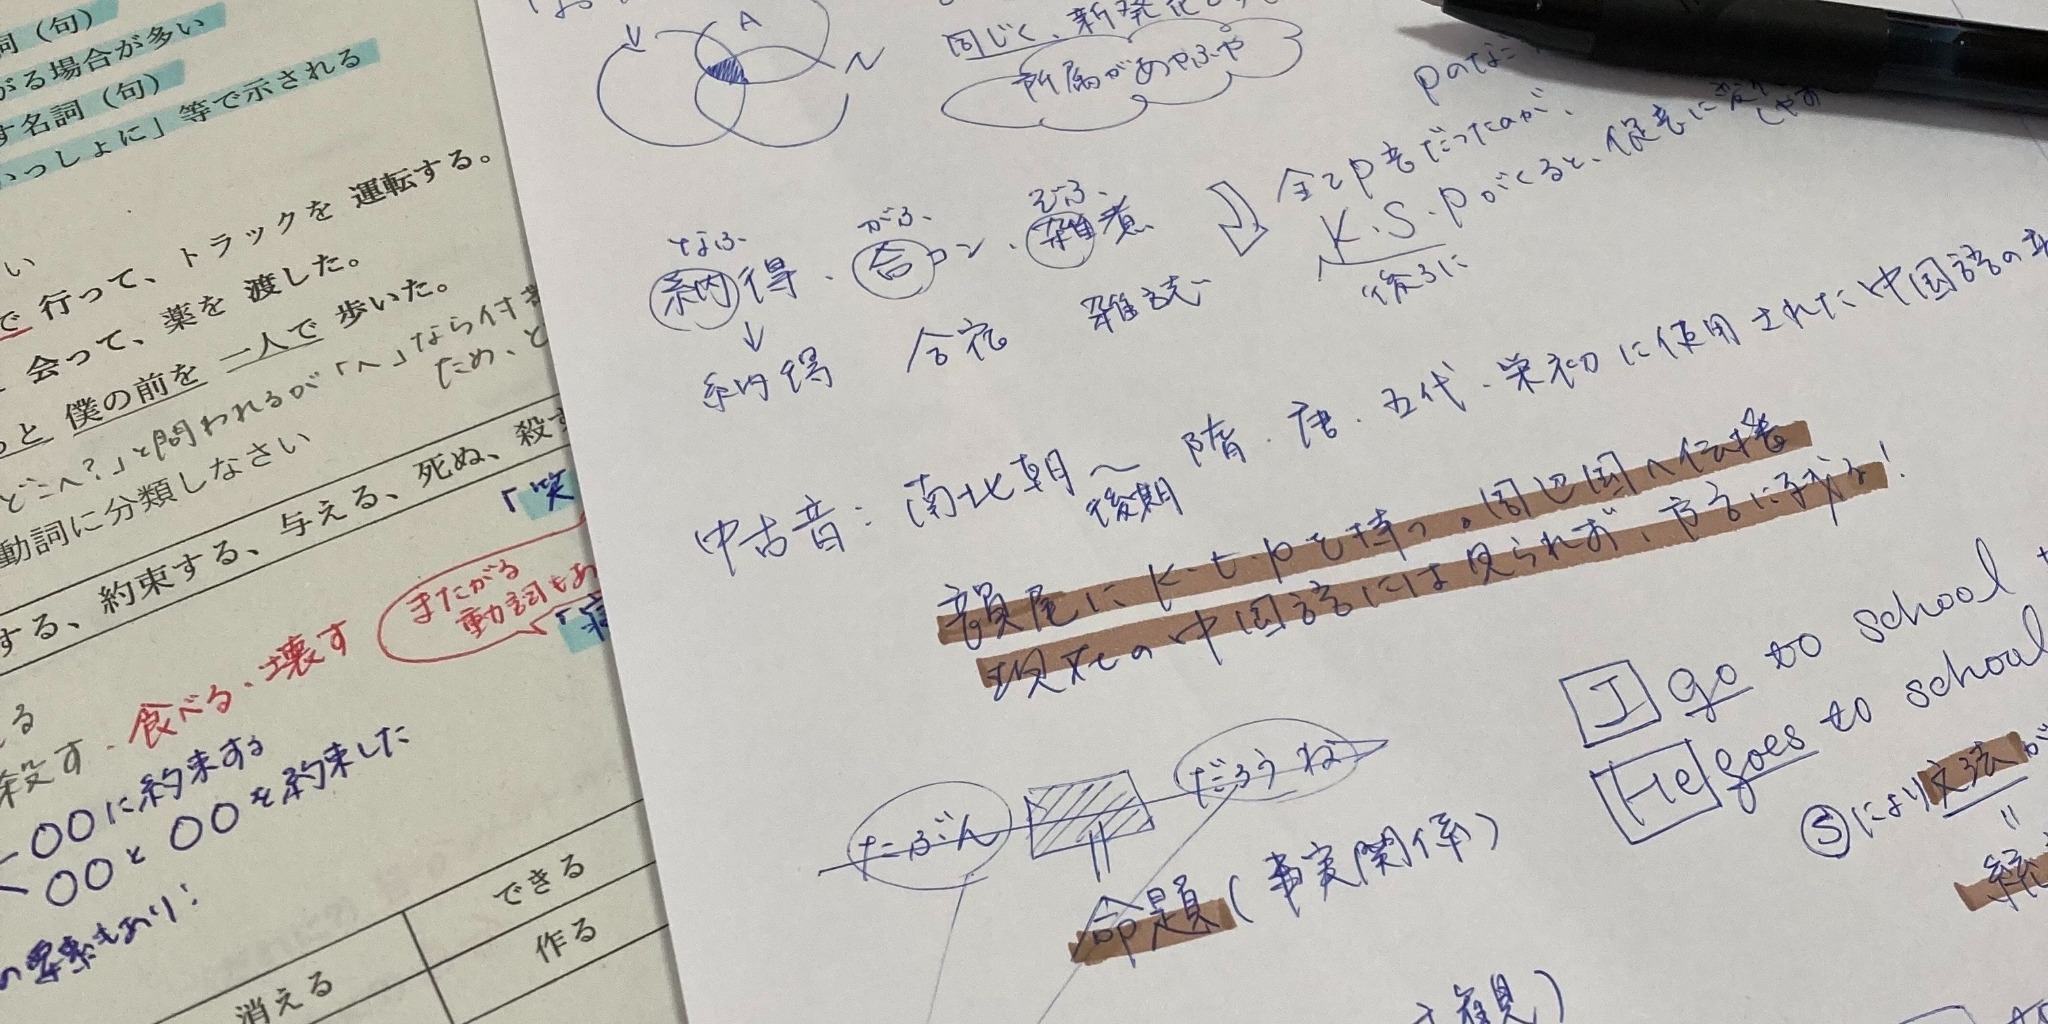 詞（句）
がる場合が多い
す名詞（句）
いっしょに」等で示される
い
で 行って、トラックを 運転する。
会って、薬を 渡した。
っと 僕の前を 一人で 歩いた。
どこへ？」と問われるが「へ」なら付
ため、と
動詞に分類しなさい
する、約束する、与える、死ぬ、殺す
「笑
またがる
動詞もあ
「寝
る
殺す・食べる・壊す
〇〇に約束する
〇〇と〇〇を約束した
の要素もあり：
できる
作る
消える
A
V
N
同じく、新発
所属があやふや
pのな
全てp音だったのが、
K.S.pがくると、促音に変
しやす
後ろに
なふ がふ、 ざふ、
納得・合コン・雑煮
納得 合宿 雑誌
中古音：南北朝〜隋・唐・五代・宋初に使用された中国語の
後期
韻尾にk・t・pを持つ。周辺国へ伝播
現在の中国語には見られず、方言に残る！
I go to school
He goes to school
Sにより文法が
=
統
たぶん だろうね
命題（事実関係）
主観）